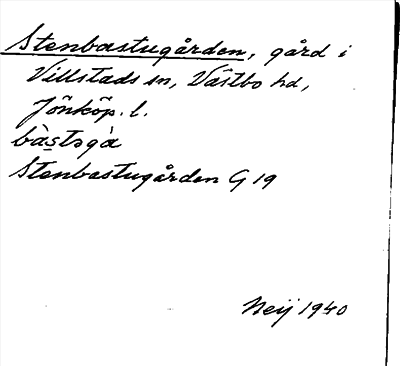 Stenbastugården, gård i
Villstads sn, Västbo hd,
Jönköp. l.
bàstəgà
Stenbastugården G 19
Neij 1940